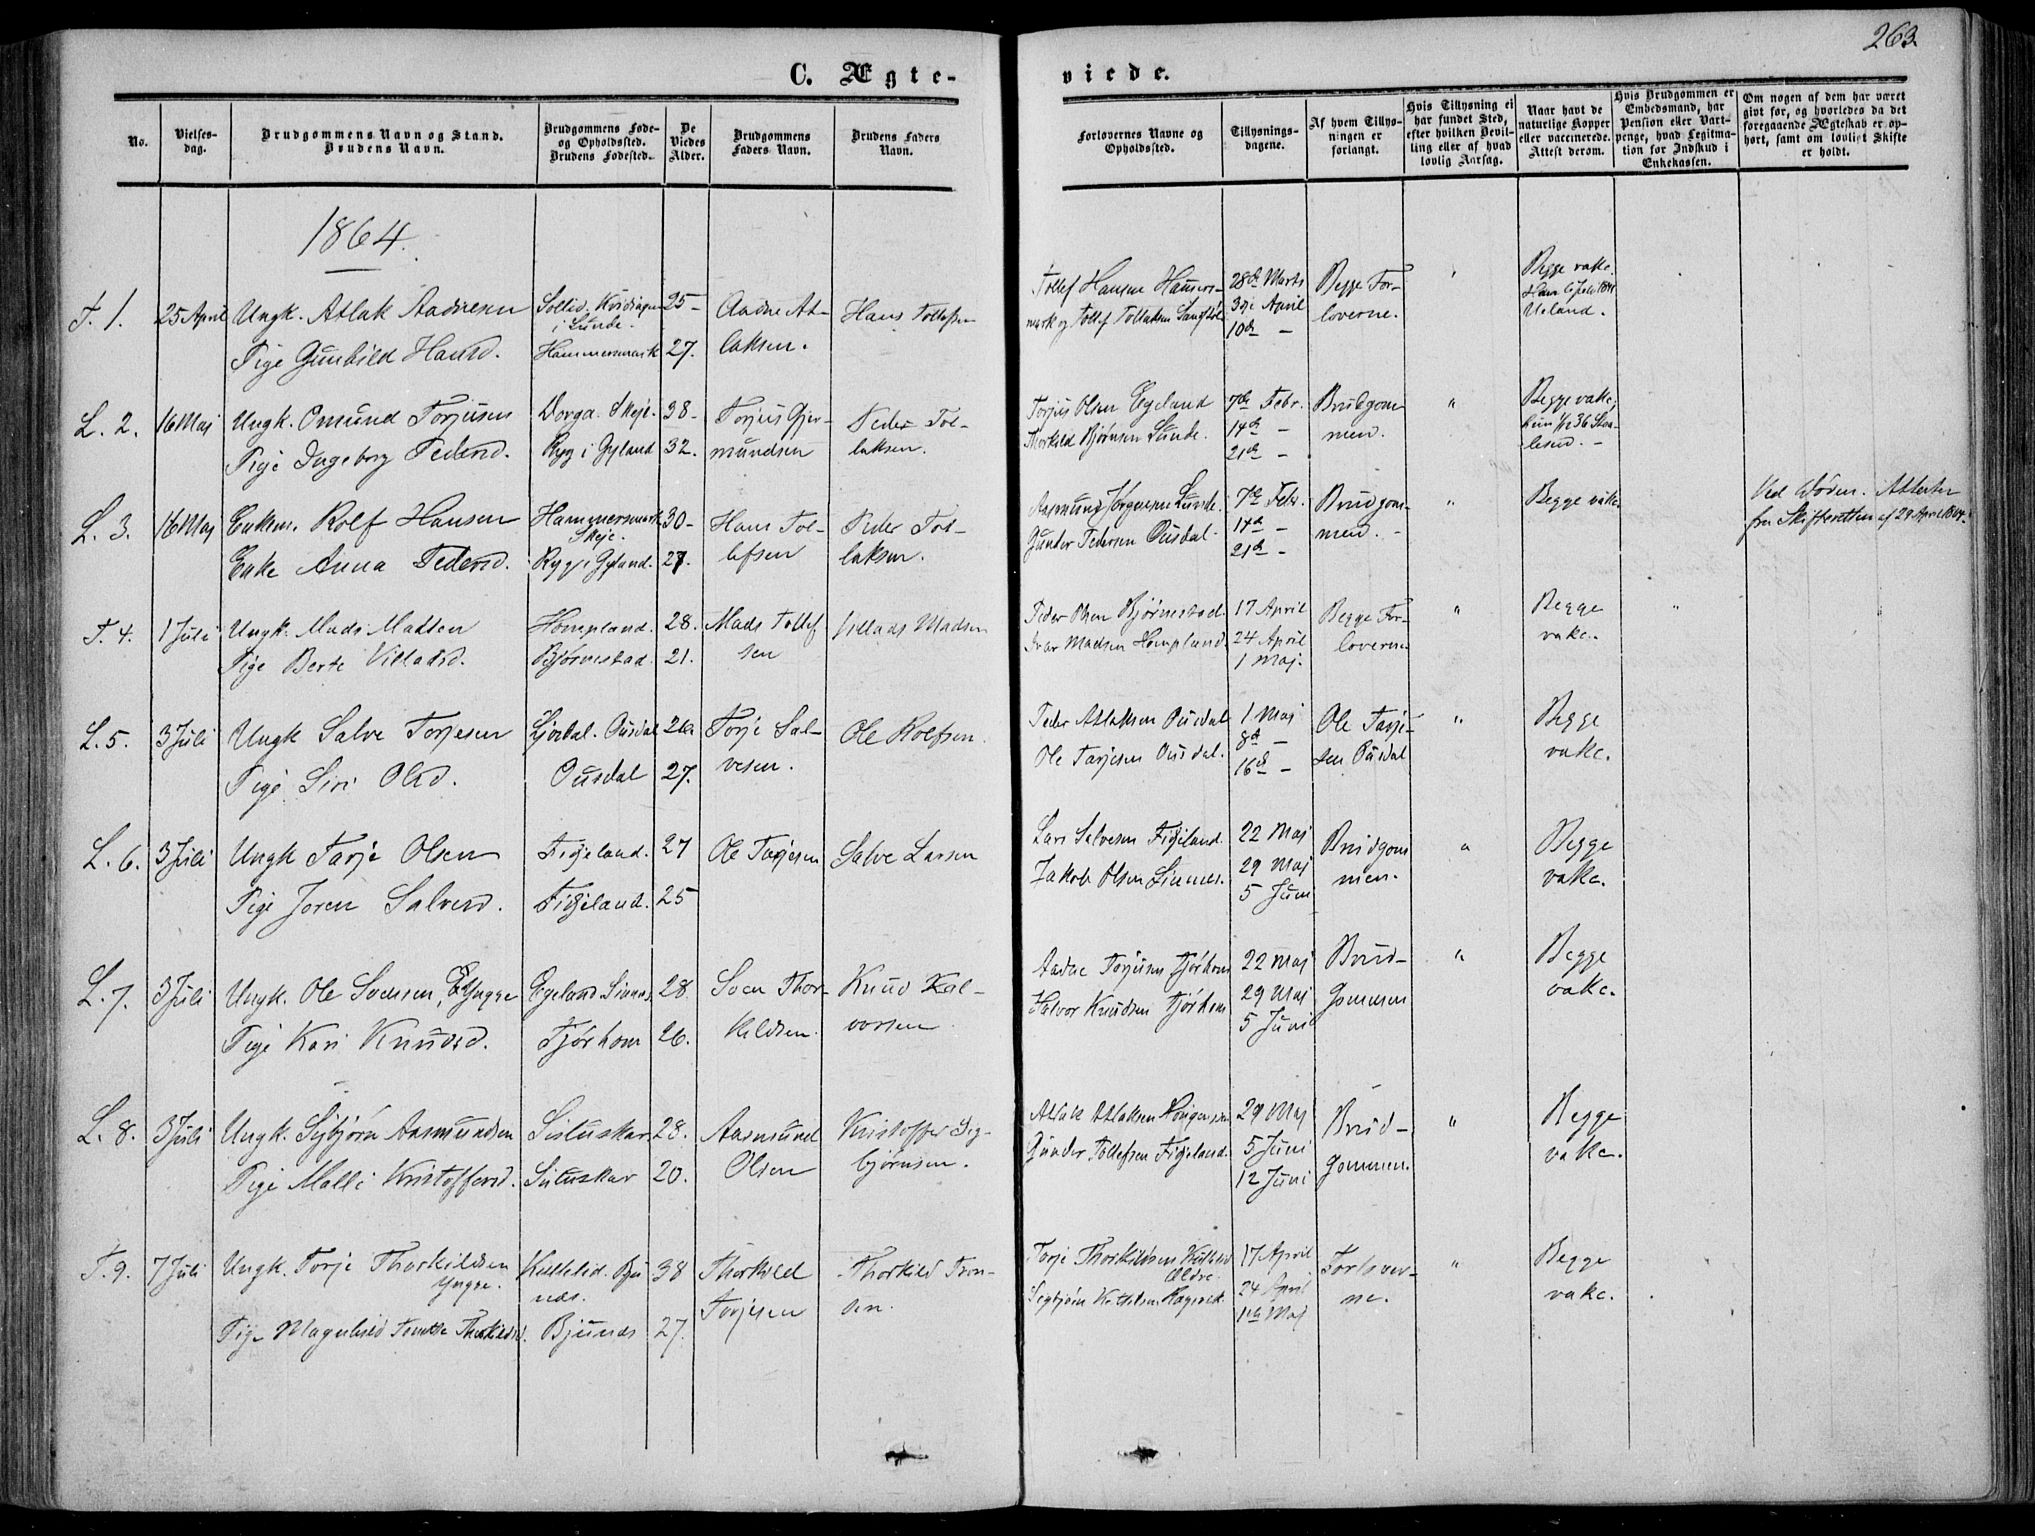 263.
C. Ægte-
viede.
No.
Vielses-
dag.
Brudgommens Navn og Stand.
Brudens Navn.
Brudgommens Føde-
og Opholdssted.
Brudens Fødested.
De
Viedes
Alder.
Brudgommens
Faders Navn.
Brudens Faders
Navn.
Forlovernes Navne og
Opholdssted.
Tillysnings-
dagene.
Af hvem Tillys-
ningen er
forlangt.
Hvis Tillysning ei
har fundet Sted,
efter hvilken Bevil-
ling eller af hvad
lovlig Aarsag.
Naar havt de
naturlige Kopper
eller vaccinerede.
Attest derom.
Hvis Brudgommen er
Embedsmand, har
Pension eller Vart-
penge, hvad Legitima-
tion for Indskud i
Enkekassen.
Om nogen af dem har været
givt før, og hvorledes da det
foregaaende Ægteskab er op-
hørt, samt om lovligt Skifte
er holdt.
1864.
T. 1.
25 April
Ungk. Atlak Aadnesen
Pige Gunhild Hansd.
i Lunde.
Hammersmark
25-
27.
Aadne At-
laksen.
Hans Tollefsen
Tollef Hansen Hammers-
mark og Tollef Tollaksen
28de Marts
3die April
10de -
Begge For-
loverne.
Begge vakc.
Ueland.
L. 2.
16 Maj
Ungk. Omund Torjusen
Pige Ingeborg Pedersd.
Dorga. Skeje.
Ryg i Gyland
38-
32.
Torjus Gjer-
mundsen
Peder Tol-
laksen.
Torjus Olsen Egeland
Thorkild Bjørnsen Lunde.
7de Febr.
14de -
21de -
Brudgom-
men.
"
Begge vakc,
L. 3.
16 Maj
Enkem. Rolf Hansen
Enke Anna Pedersd.
Hammersmark
Skeje.
Ryg i Gyland.
30-
27.
Hans Tol-
lefsen
Peder Tol-
laksen.
Aasmund Jørgensen Lunde.
Gunder Pedersen Ousdal.
7de Febr.
14de -
21de -
Brudgom-
men.
"
Begge vakc.
Ved Døden. Attester
fra Skifteretten af 29 April 1864.
T. 4.
1 Juli
Ungk. Mads Madsen
Pige Berte Villadsd.
Hompland.
Bjørnestad.
28.
21.
Mads Tollef-
sen
Villads Madsen
Peder Olsen Bjørnestad.
Ivar Madsen Hompland.
17 April
24 April
1 Maj.
Begge For-
loverne
"
Begge
vakc.
"
L. 5.
3 Juli
Ungk Salve Torjesen
Pige Siri Olsd.
Ljordal. Ousdal
Ousdal
26.
27.
Torje Sal-
vesen.
Ole Rolfsen.
Peder Atlaksen Ousdal
Ole Tarjesen Ousdal.
1 Maj
8de -
16de -
Ole Tarje-
sen Ousdal
"
Begge
vakc.
L. 6.
3 Juli
Ungk Tarje Olsen
Pige Joren Salvesd.
Fidjeland.
Fidjeland.
27
25
Ole Tarjesen
Salve Larsen
Lars Salvesen Fidjeland.
Jakob Olsen Sinnes.
22 Maj
29 Maj
5 Juni
Brudgom
men.
"
Begge
vakc.
L. 7.
3 Juli
Ungk. Ole Svensen, Yngre
Pige Kari Knudsd.
Egeland Sinnes
Tjørhom
28.
26.
Sven Thor-
kildsen.
Knud Hal-
vorsen.
Aadne Torjusen Tjørhom
Halvor Knudsen Tjørhom
22 Maj
29 Maj
5 Juni
Brud-
gommen
"
Begge
vakc.
L. 8.
3 Juli
Ungk. Sigbjørn Aasmundsen
Pige Malli Kristoffersd.
Suluskar
Suluskar
28.
20.
Aasmund
Olsen
Kristoffer Sig-
bjørnsen.
Atlak Atlaksen
Gunder Tollefsen Fidjeland.
29 Maj
5 Juni
12 Juni
Brud-
gommen.
"
Begge
vakc.
T. 9.
7 Juli
Ungk. Torje Thorkildsen
Yngre.
Pige Magnhild Tomtte Thorkildsd.
Kvittelid. Bju
næs.
Bjunes
38
27.
Thorkild
Torjesen
Thorkild Tron-
sen.
Torje Thorkildsen Kvittelid
Ældre.
17 April
24 April
1ste Maj
Forlover-
ne.
"
Begge
vakc.